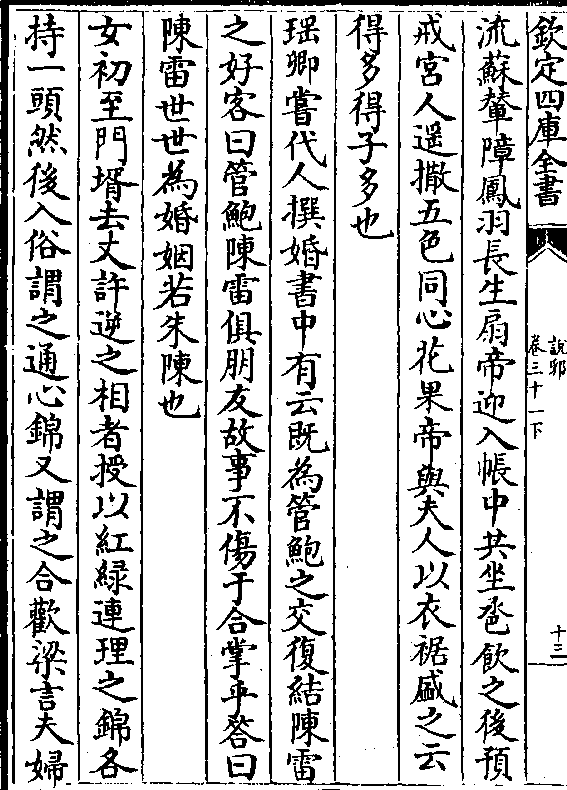 欽定四庫全書
說郛
卷三十一下
十三
流蘇輦障鳳羽長生扇帝迎入帳中共坐巹飲之後預
戒宮人遥撒五色同心花果帝與夫人以衣裾盛之云
得多得子多也
瑶卿嘗代人撰婚書中有云既為管鮑之交復結陳雷
之好客曰管鮑陳雷俱朋友故事不傷于合掌乎答曰
陳雷世世為婚姻若朱陳也
女初至門壻去丈許逆之相者授以紅緑連理之錦各
持一頭然後入俗謂之通心錦又謂之合歡梁言夫婦